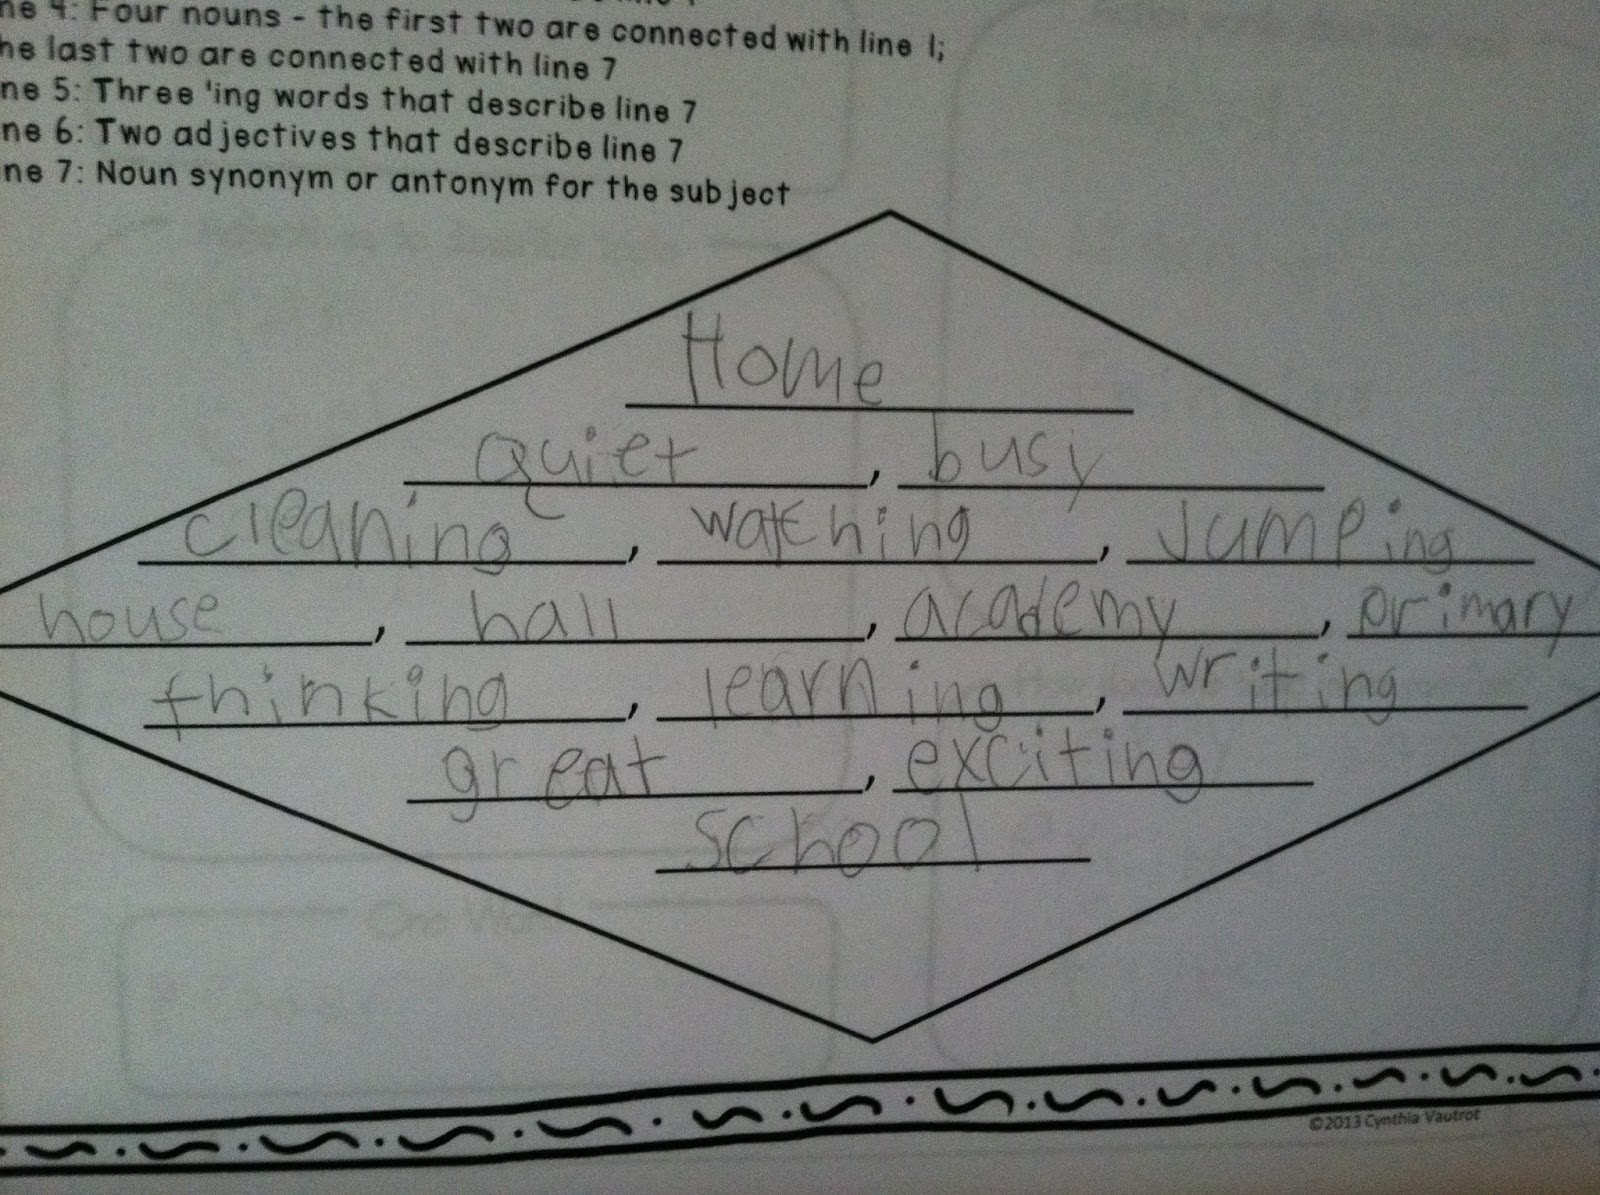 ne 4: Four nouns - the first two are connected with line 1;
he last two are connected with line 7
ne 5: Three 'ing words that describe line 7
ne 6: Two adjectives that describe line 7
ne 7: Noun synonym or antonym for the subject
Home
Quiet, busy
cleaning, watching, Jumping
house, hall, academy, primary
thinking, learning, writing
great, exciting
School
©2013 Cynthia Vautrot